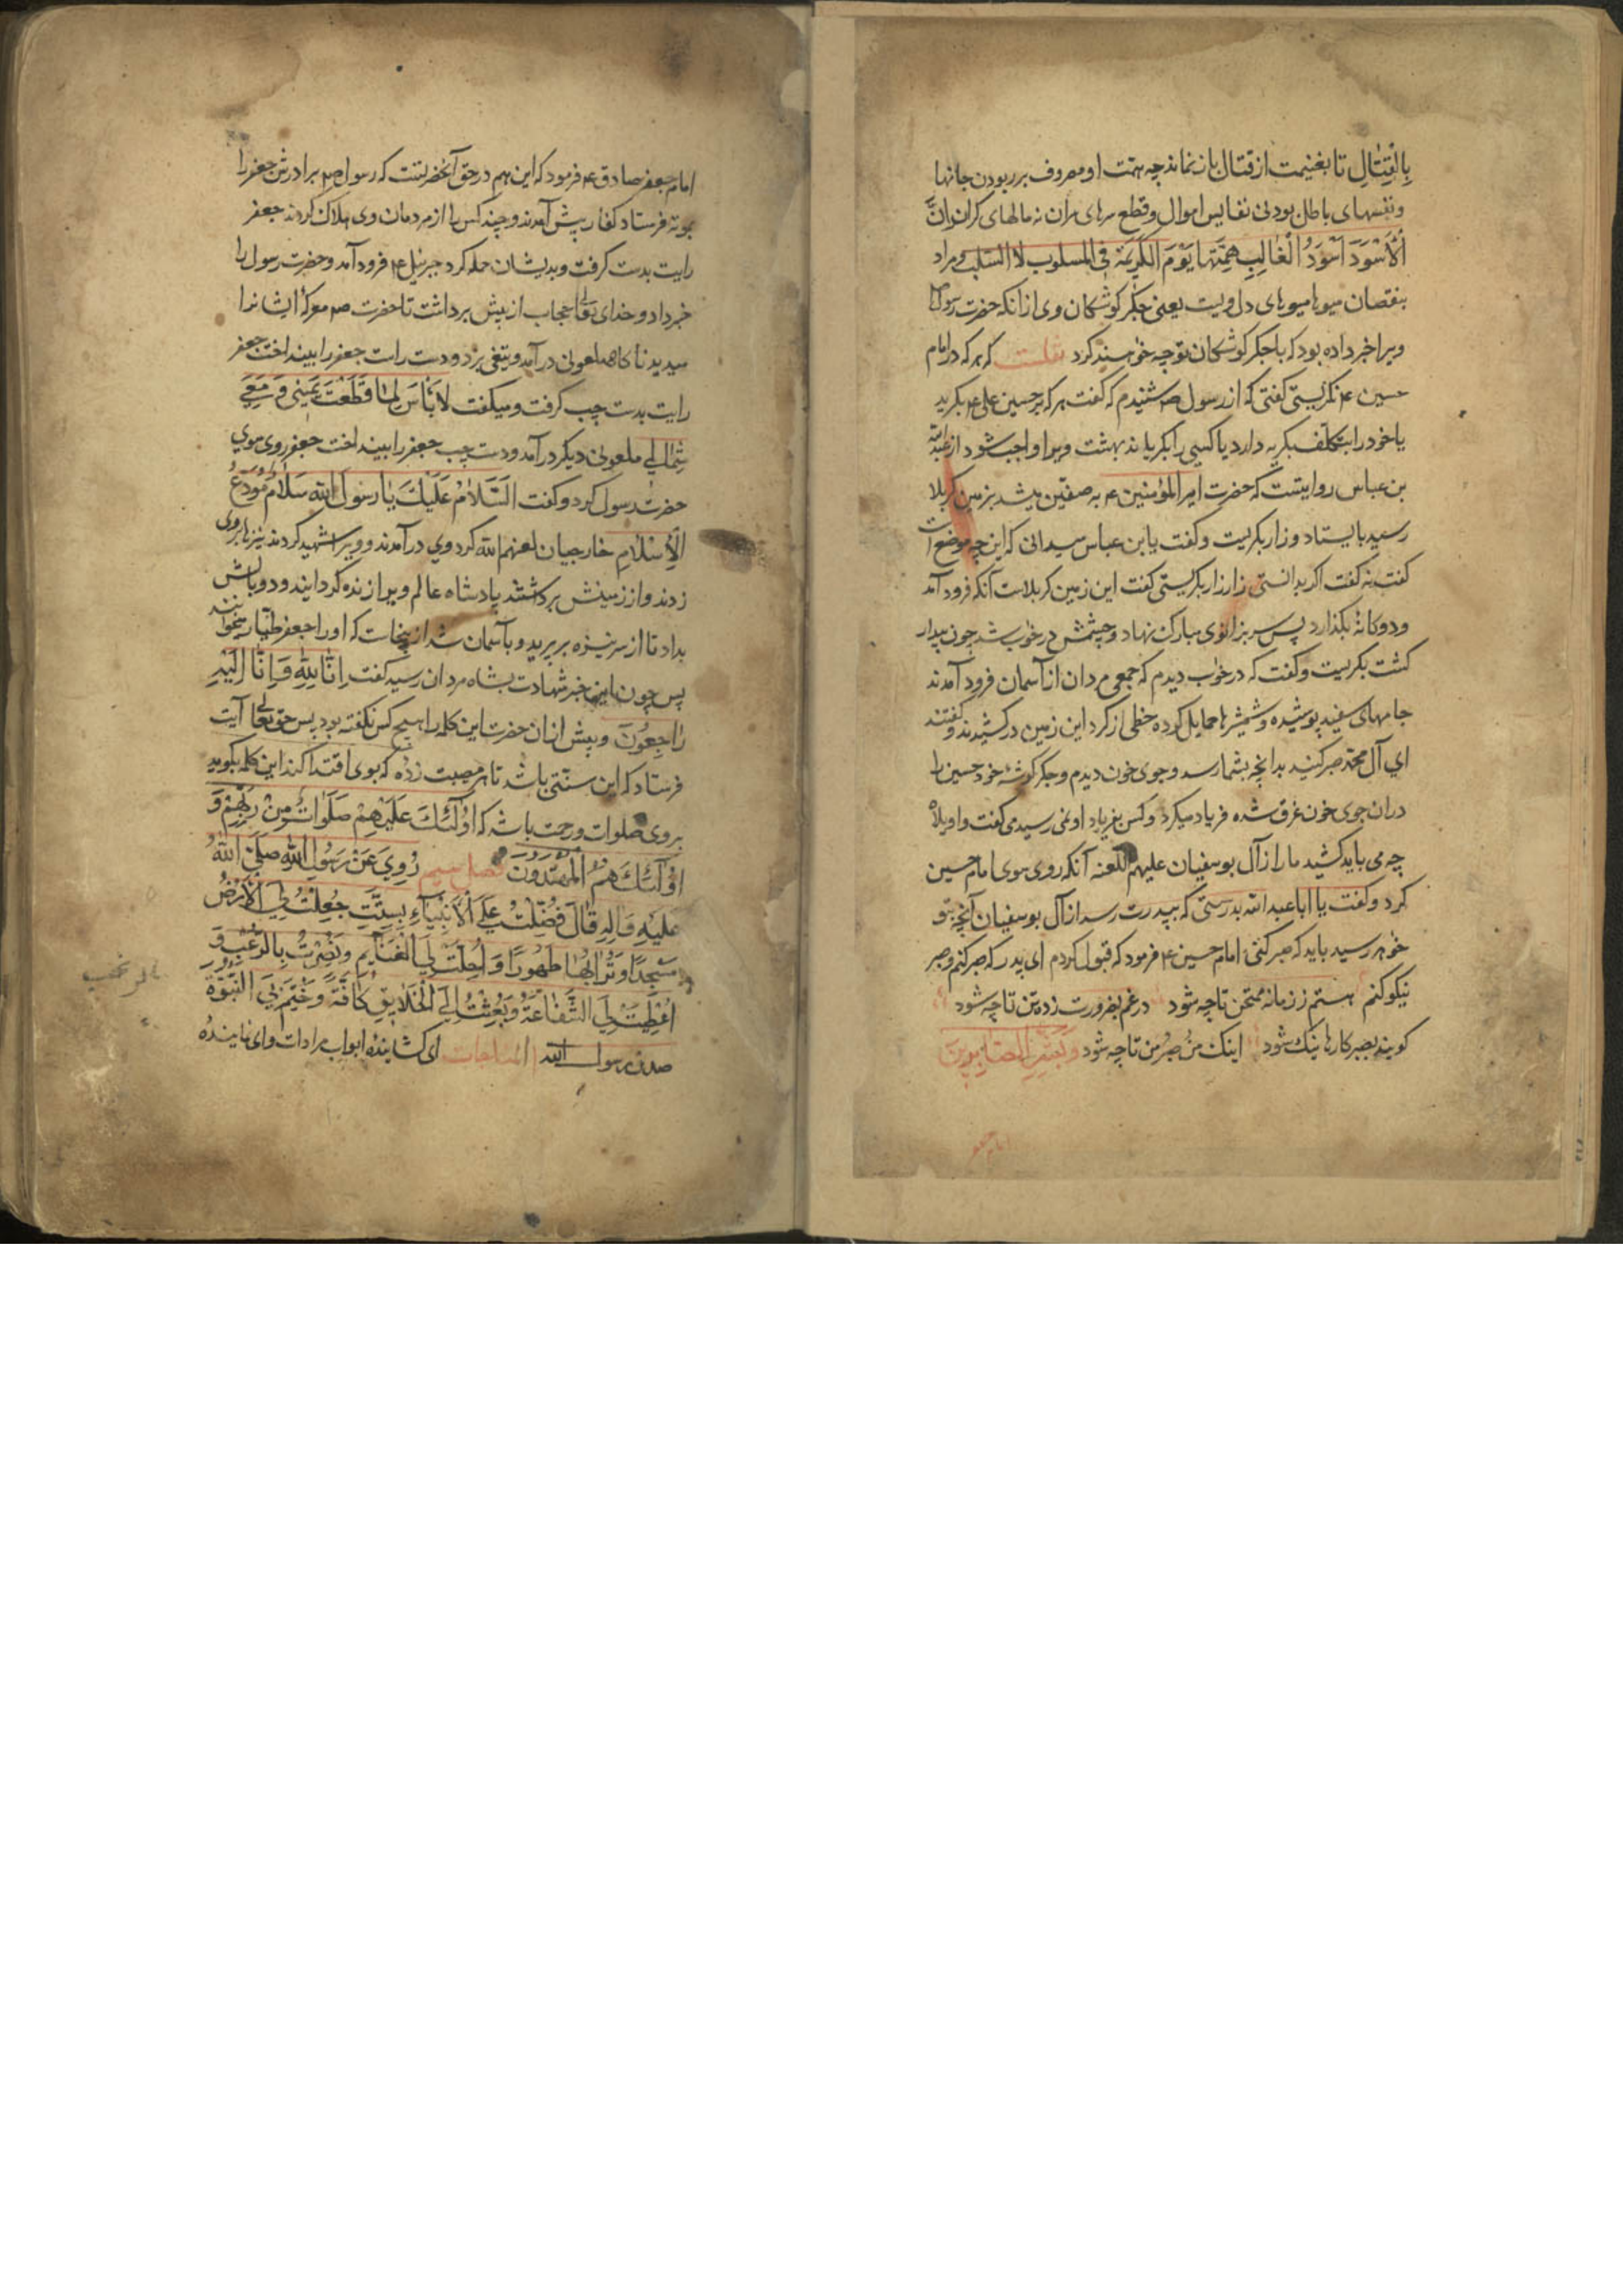 بِالْقِتٰالِ تا بغنیمت از قتال باز نماند چه همت او مصروف بر ربودن جانها
و نفسهای باطل بودنی نفایس اموال و قطع سرهای سران نه مالهای کران وَاِنَّ
اْلاَسْوَدَ اَسْوَدُ الْغالِبِ هِمَّتُها یَوْمَ الْکَرِیهَة فی المسلوب لا السَّلَب و مراد
بنقصان میوها میوهای دل ویست یعنی جکر کوشکان وی از آنکه حضرت رسول
ویرا خبر داده بود که با جکر کوشکان تو چه خواهند کرد نقلست که هر که در امام
حسین ۴ نکریستی کفتی که از رسول ص شنیدم که کفت هر که بر حسین علی ۴ بکرید
یا خود را بتکلف بکریه دارد یا کسی را بکریاند بهشت ویرا واجب شود از عبدالله
بن عباس روایتست که حضرت امیر المؤمنین ۴ به صفین میشد بزمین کربلا
رسید بایستاد و زار بکریست و کفت یا بن عباس میدانی که این چه موضع است
کفت نه کفت اکر بدانستی زار زار بکریستی کفت این زمین کربلاست آنکه فرود آمد
و دوکانهٔ بکذارد پس سر بزانوی مبارک نهاد و چشمش در خواب شد چون بیدار
کشت بکریست و کفت که در خواب دیدم که جمعی مردان از آسمان فرود آمدند
جامهای سفید پوشیده و شمشیرها حمایل کرده خطی از کرد این زمین در کشیدند و کفتند
ای آل محمد صبر کنید بدانچه بشما رسد و جوی خون دیدم و جکر کوشهٔ خود حسین را
دران جوی خون غرق شده فریاد میکرد و کس بفریاد او نمی رسید می کفت واویلاه
چه می باید کشید ما را از آل بوسفیان علیهم اللعنه آنکه روی سوی امام حسین
کرد و کفت یا ابا عبد الله بدرستی که بپدرت رسد از آل بوسفیان آنچه بتو
خواهد رسید باید که صبر کنی امام حسین ۴ فرمود که قبول کردم ای پدر که صبر کنم و صبر
نیکو کنم هستم ز زمانه ممتحن تا چه شود در غم بضرورت زده تن تا چه شود
کویند بصبر کارها نیک شود اینک من و صبر من تا چه شود وَبَشِّرِ الصّابِرینَ
امام جعفر
امام جعفر صادق ۴ فرمود که این هم در حق آنحضرتست که رسول ص برادرش جعفر را
بموته فرستاد کفار پیش آمدند و چند کس را از مردمان وی هلاک کردند جعفر
رایت بدست کرفت و بدیشان حمله کرد جبرئیل ۴ فرود آمد و حضرت رسول را
خبر داد و خدای تعالی حجاب از پیش برداشت تا حضرت ص معرکهٔ ایشانرا
میدید ناکاه ملعونی در آمد و تیغی بزد و دست راست جعفر را بینداخت جعفر
رایت بدست چپ کرفت و میکفت لا بَأْسَ لِمٰا قَطَعْتَ یَمینی وَ مَعی
شِمٰالی ملعونی دیکر در آمد و دست چپ جعفر را بینداخت جعفر روی سوی
حضرت رسول کرد و کفت اَلسَّلامُ عَلَیْكَ یٰا رَسُولَ الله سَلامُ مُوَدِّعِ
الْاِسْلامِ خارجیان لعنهم الله کرد وی در آمدند و ویرا شهید کردند نیزها بر وی
زدند و از زمینش برداشتند پادشاه عالم ویرا زنده کردانید و دو بالش
بداد تا از سر نیزه بر پرید و بآسمان شد از ینجاست که او را جعفر طیّار میخوانند
پس چون این خبر شهادت بشاه مردان رسید کفت اِنّا لِلّٰهِ وَاِنّا اِلَیْهِ
رٰاجِعُونَ و پیش از ان حضرت این کلمه را هیچ کس نکفته بود پس حق تعالی آیت
فرستاد که این سنّتی باشد تا هر مصیبت زده که بوی اقتدا کند این کلمه بکوید
بر وی صلوات و رحمت باشد که اوُلٰئِكَ عَلَیْهِمْ صَلَوٰاتٌ مِنْ رَبِّهِمْ وَ
اوُلٰئِكَ هُمُ الْمُهْتَدُونَ فصل سیم رُوِیَ عَنْ رَسُولِ الله صَلَّی اللهُ
عَلَیْهِ وَالِهِ قٰالَ فُضِّلْتُ عَلَی الْاَنْبِیٰاءِ بِسِتَّتٍ جُعِلَتْ لِیَ الْاَرْضُ
مَسْجِدًا وَ تُرٰابُهٰا طَهُورًا وَ اُحِلَّتْ لِیَ الْغَنٰایِمُ وَ نُصِرْتُ بِالرُّعْبِ وَ
اُعْطِیَتْ لِیَ الشَّفٰاعَةُ وَ بُعِثْتُ اِلَی الْخَلایِقِ کٰافَّةً وَ خُتِمَ بِیَ النُّبُوَّةُ
صدق رسول الله المناجات ای کشاینده ابواب مرادات و ای نماینده
بالرعب